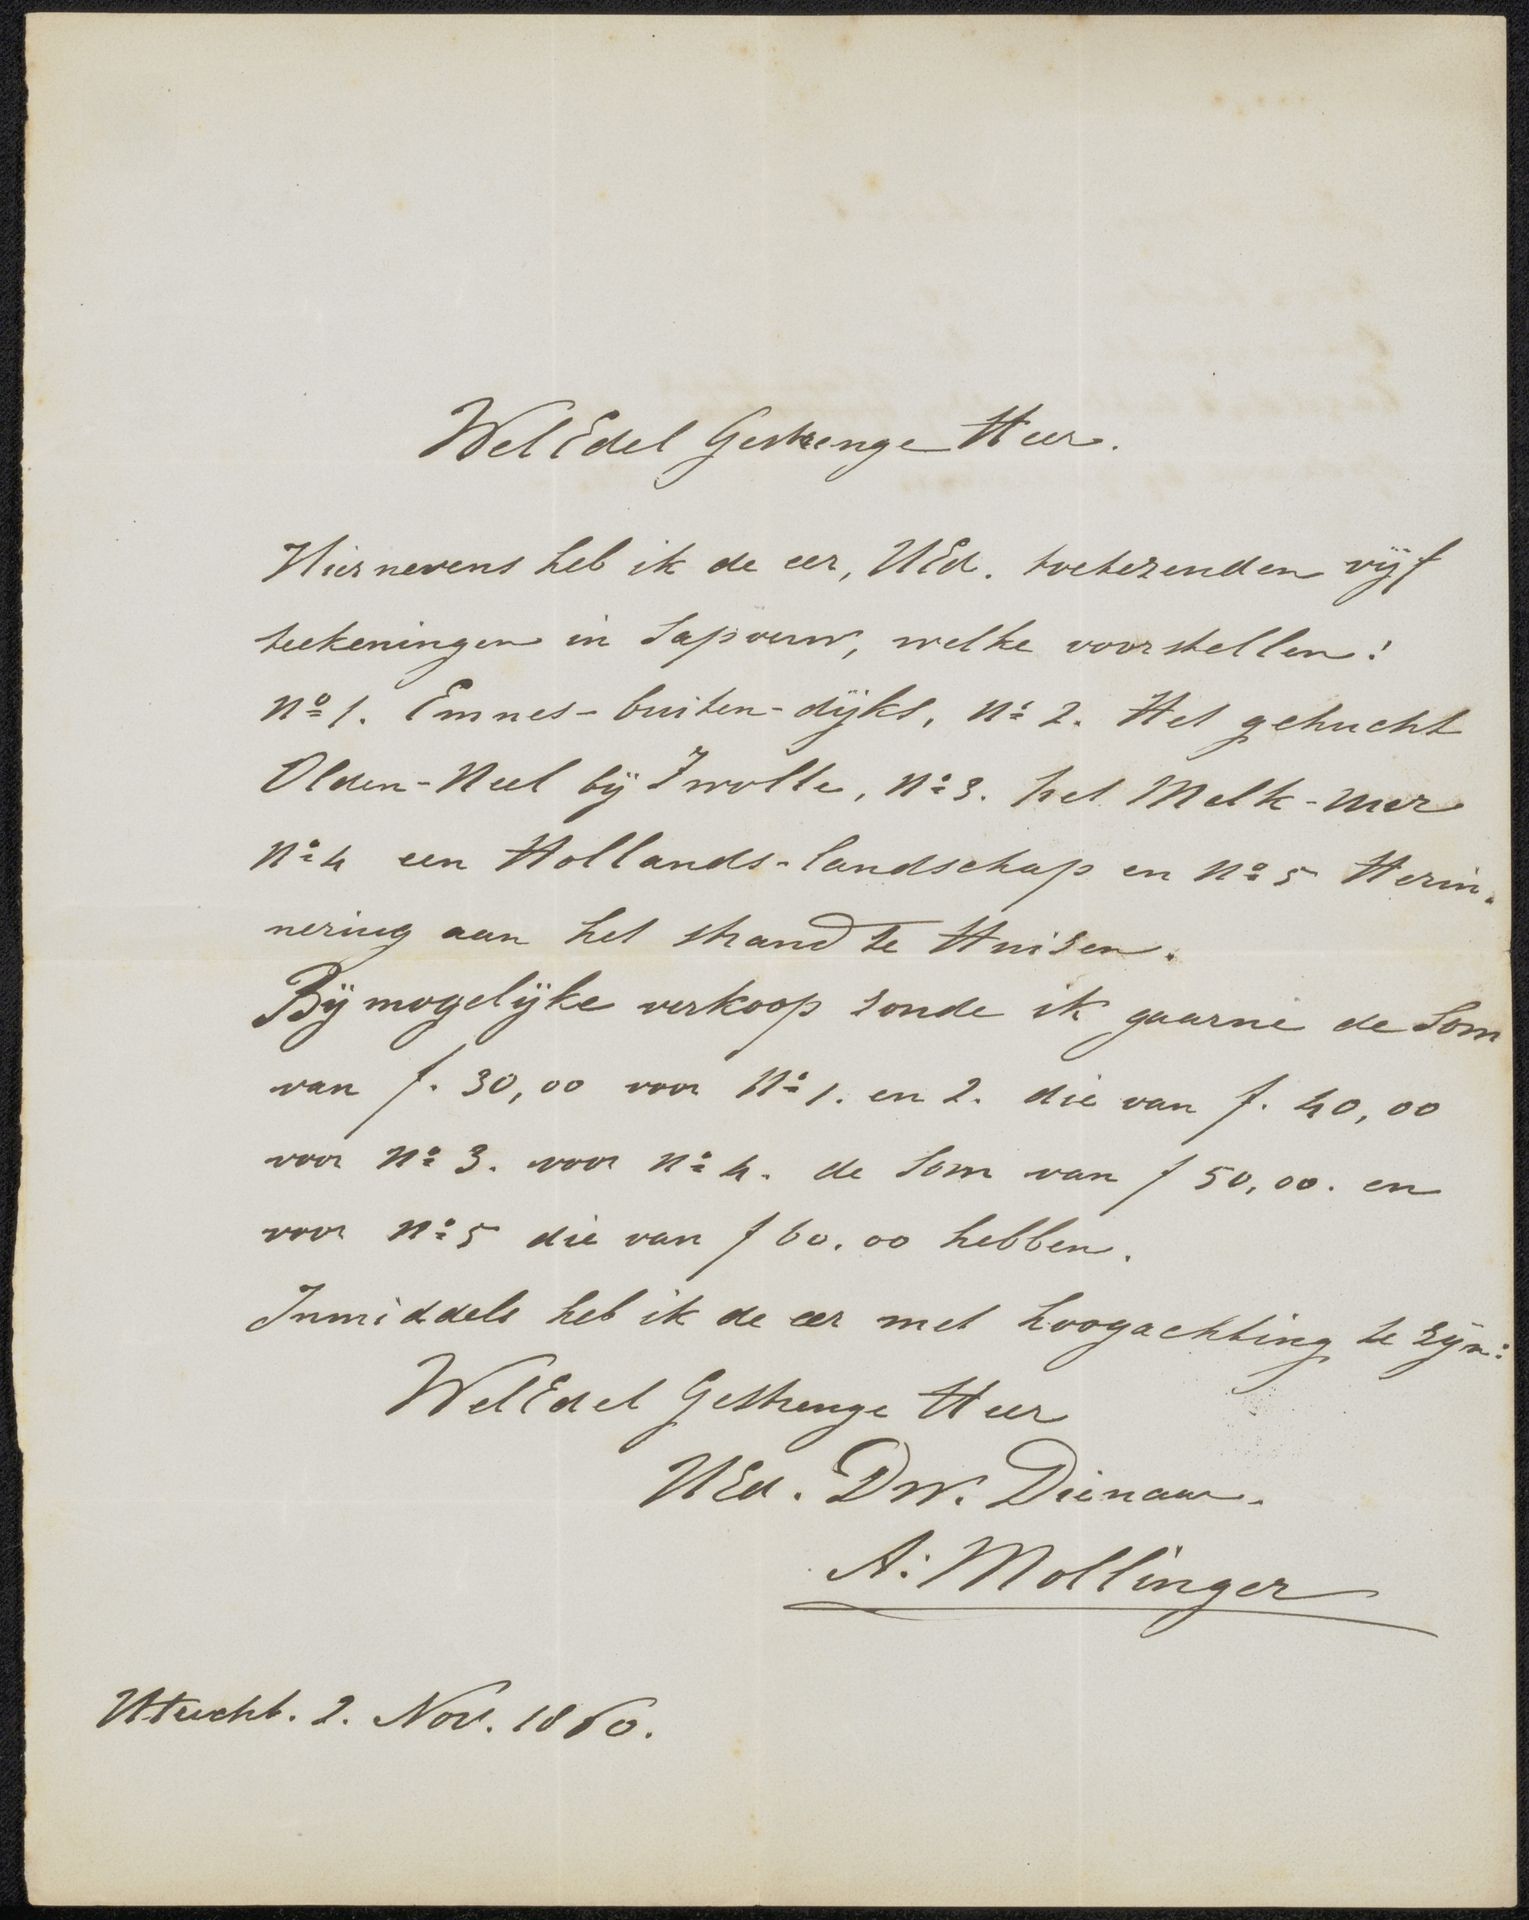 WelEdel Gestrenge Heer.
Hiernevens heb ik de eer, UEd. toetezenden vijf
teekeningen in sapverw, welke voorstellen:
No 1. Emnes-buiten-dijks, No 2. Het gehucht
Olden-Neel bij Zwolle, No 3. het Melk-meer
No 4 een Hollands-landschap en No 5 Herin-
nering aan het strand te Huizen.
Bij mogelijke verkoop zoude ik gaarne de som
van f. 30,00 voor No 1. en 2. die van f. 40,00
voor No 3. voor No 4. de som van f 50,00. en
voor No 5 die van f 60.00 hebben.
Inmiddels heb ik de eer met hoogachting te zijn:
WelEdel Gestrenge Heer
UEd. Dw. Dienaar.
A. Mollinger
Utrecht. 2. Nov. 1860.